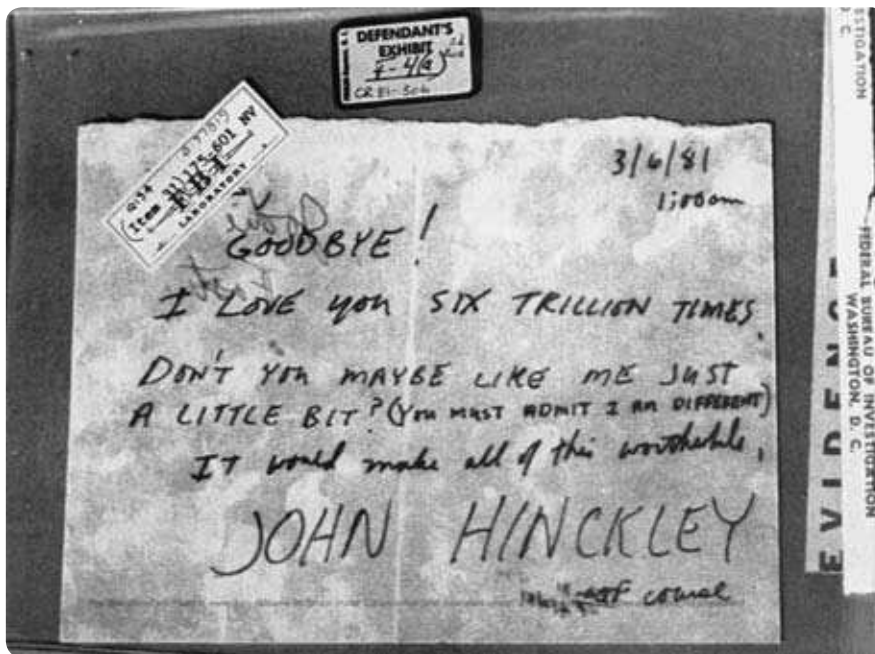 DEFENDANT'S
EXHIBIT
CR 81-306
Q154
(Item 91) 175-601 NV
FBI
LABORATORY
3/6/81
1:00am
GOODBYE!
I LOVE you SIX TRILLION TIMES.
DON'T YOU MAYBE LIKE ME JUST
A LITTLE BIT? (YOU MUST ADMIT I AM DIFFERENT)
IT would make all of this worthwhile.
JOHN HINCKLEY
of course
EVIDENCE
FEDERAL BUREAU OF INVESTIGATION
WASHINGTON, D. C.
ESTIGATION
D. C.